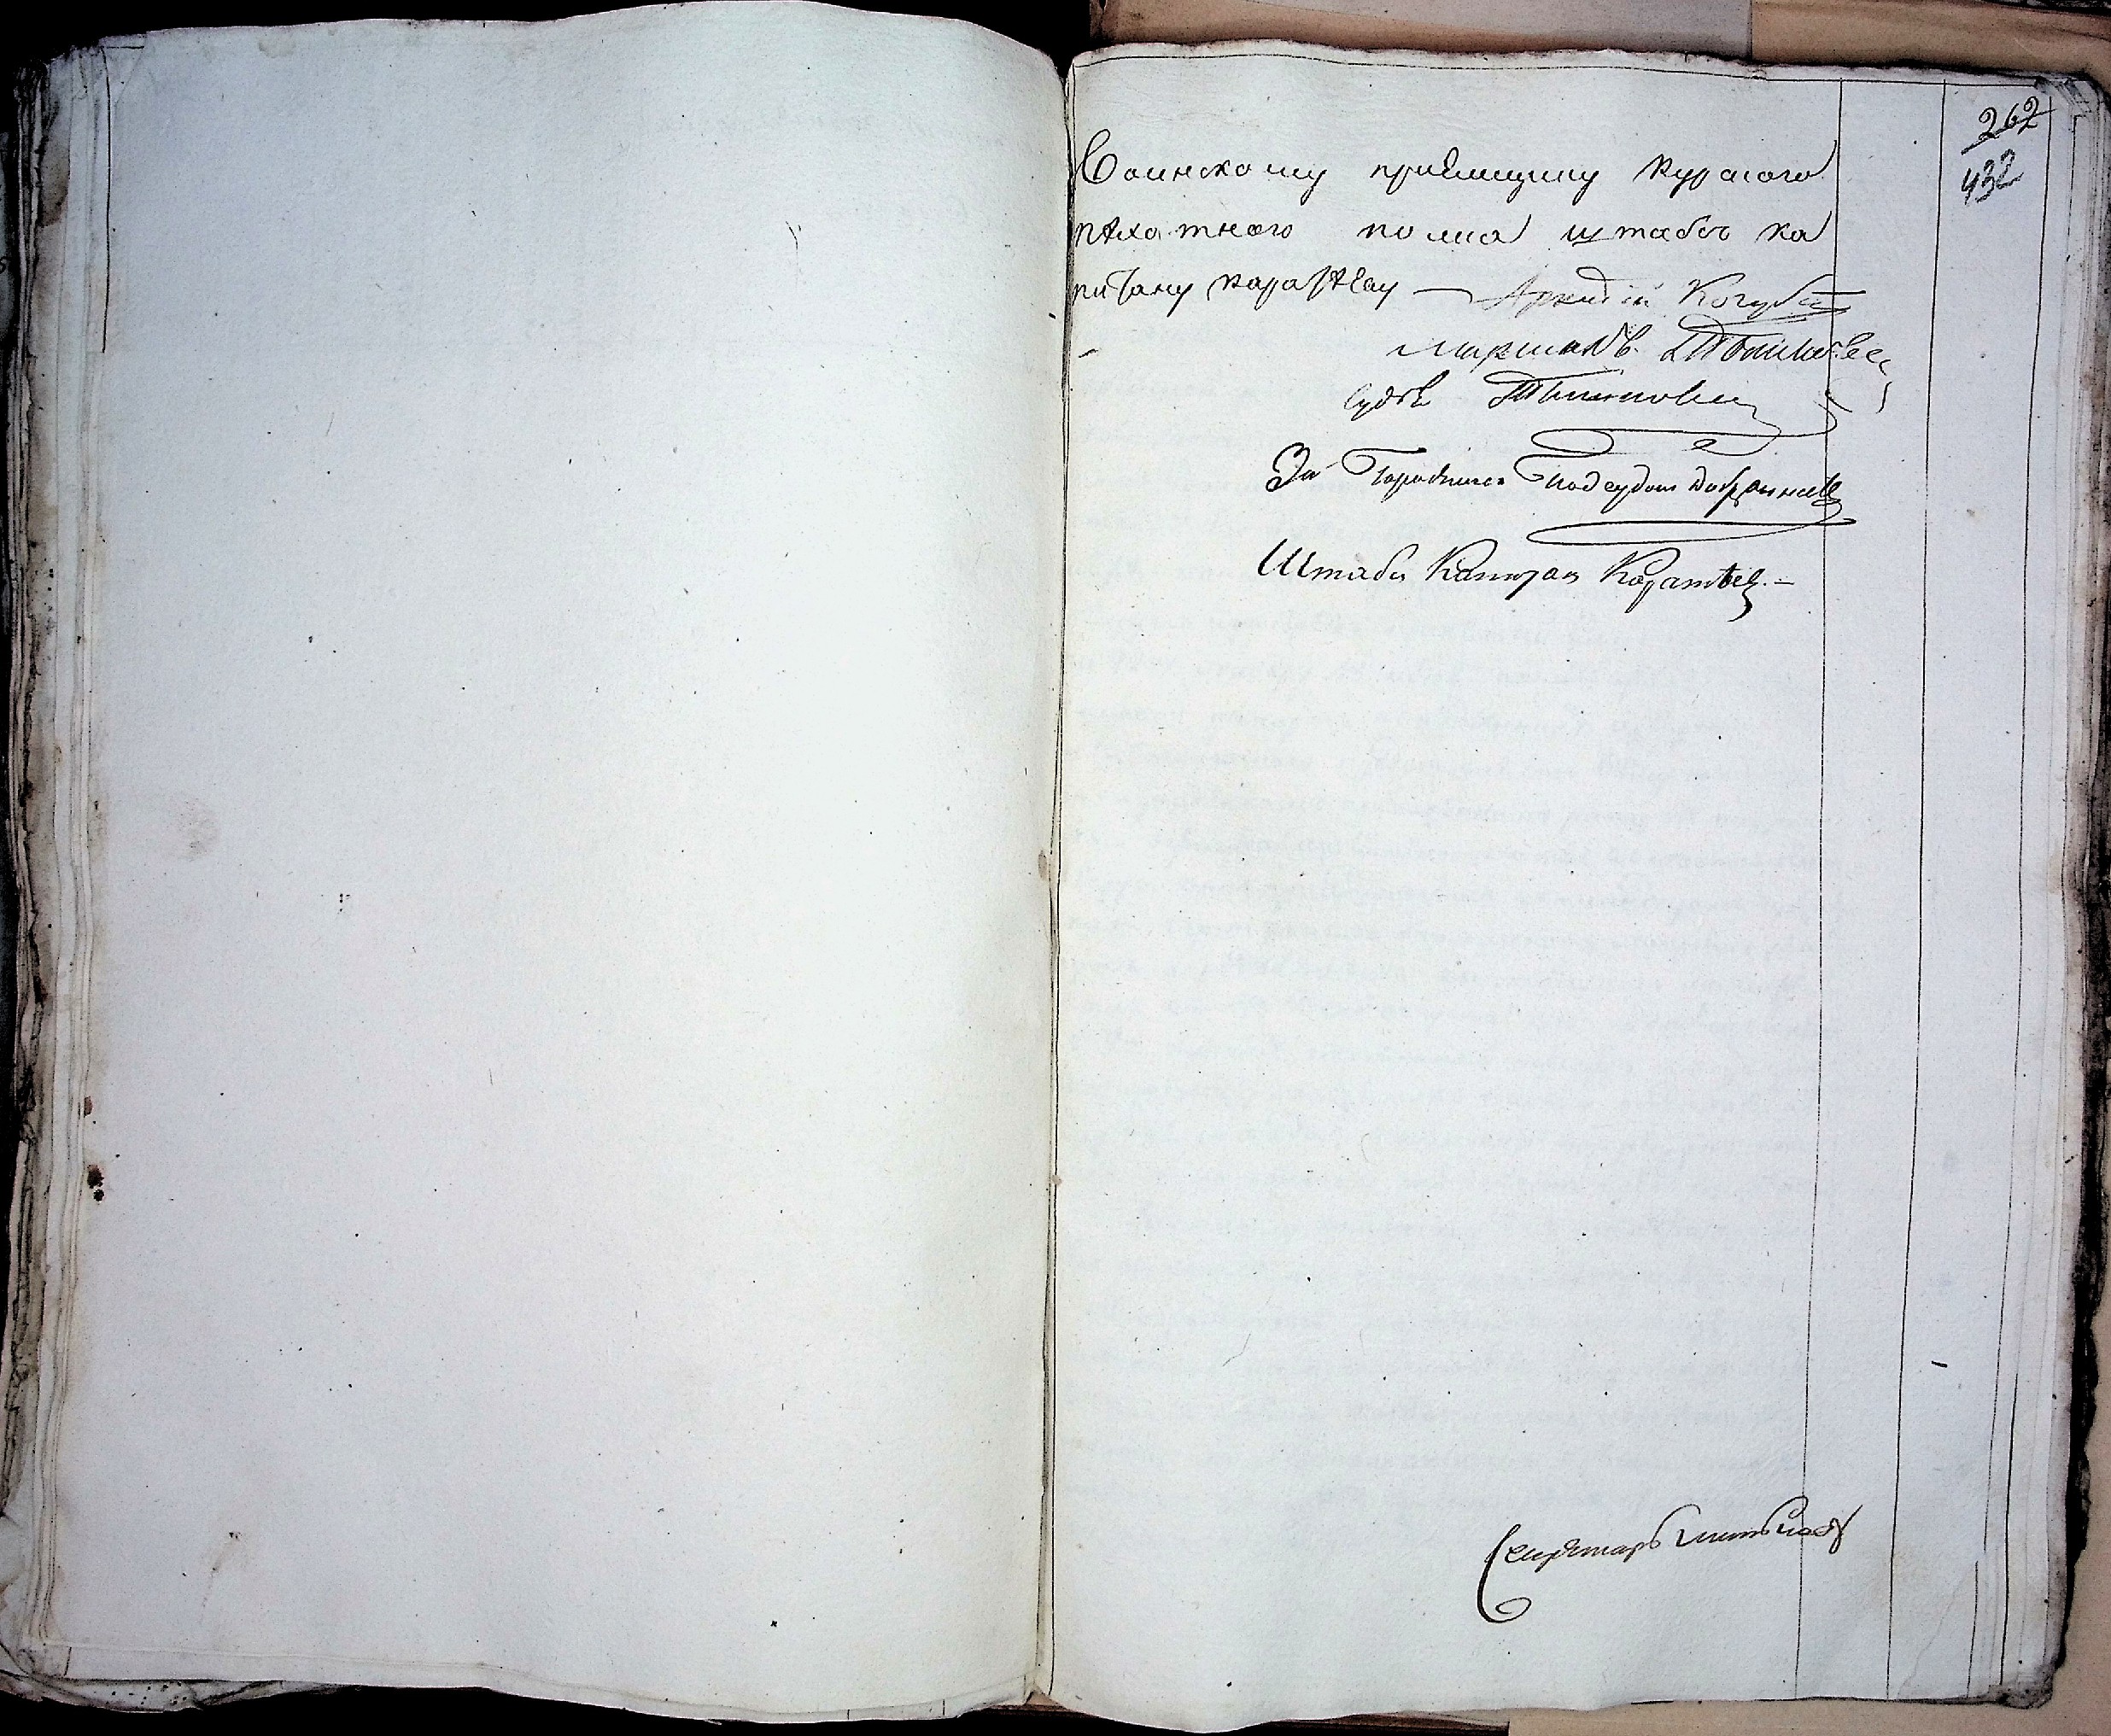 262
432
Воинскому приемщику курского
пѣхотного полка штабсъ ка
питану каратѣеву — Аркадій Кочубей
маршалъ
судья
За Городничаго Подсудокъ
Штабсъ Капитанъ Каратѣевъ. —
Секретарь